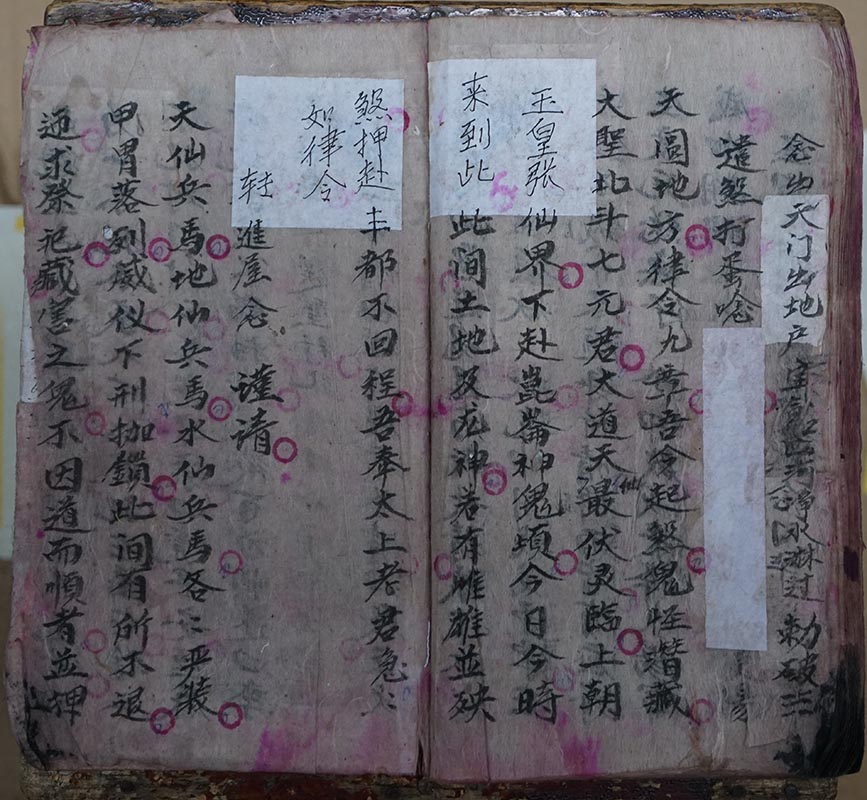 念出天门出地户
净水淋过 勅破
遣煞打蛋唸
天圆地方律令九章吾今起煞鬼怪潜藏
大聖北斗七元君大道天仙最伏灵臨上朝
玉皇张仙界下赴崑崙神鬼頃今日今時
来到此此间土地及龙神若有雌雄並殃
煞押赴丰都不回程吾奉太上老君急〻
如律令
進屋念 谨请
天仙兵馬地仙兵馬水仙兵馬各〻严装
甲胃落列威仪下刑枷鎖此间有所不退
求祭祀藏害之鬼不因道而順者並押